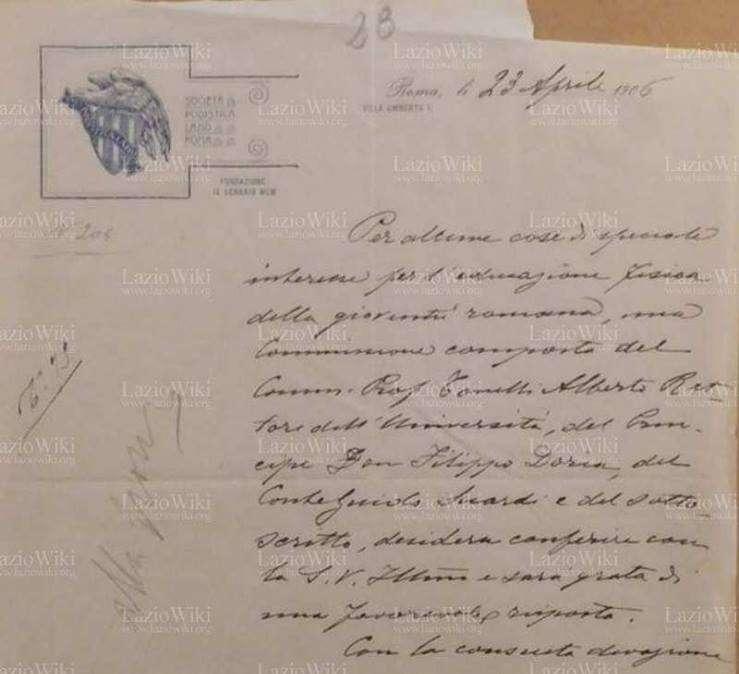 23
SOCIETÀ
PODISTICA
LAZIO
ROMA
FONDAZIONE
IX GENNAIO MCM
Roma, li 23 Aprile 1906
VILLA UMBERTO I.
Per alcune cose di speciale
interesse per l'educazione fisica
della gioventù romana, una
Commissione composta del
Comm. Prof. Tonelli Alberto Ret-
tore dell'Università, del Prin-
cipe Don Filippo Doria, del
Conte Guido Suardi e del sotto-
scritto, desidera conferire con
la S. V. Illma e sarà grata di
una favorevole risposta.
Con la consueta devozione
LazioWiki
www.laziowiki.org